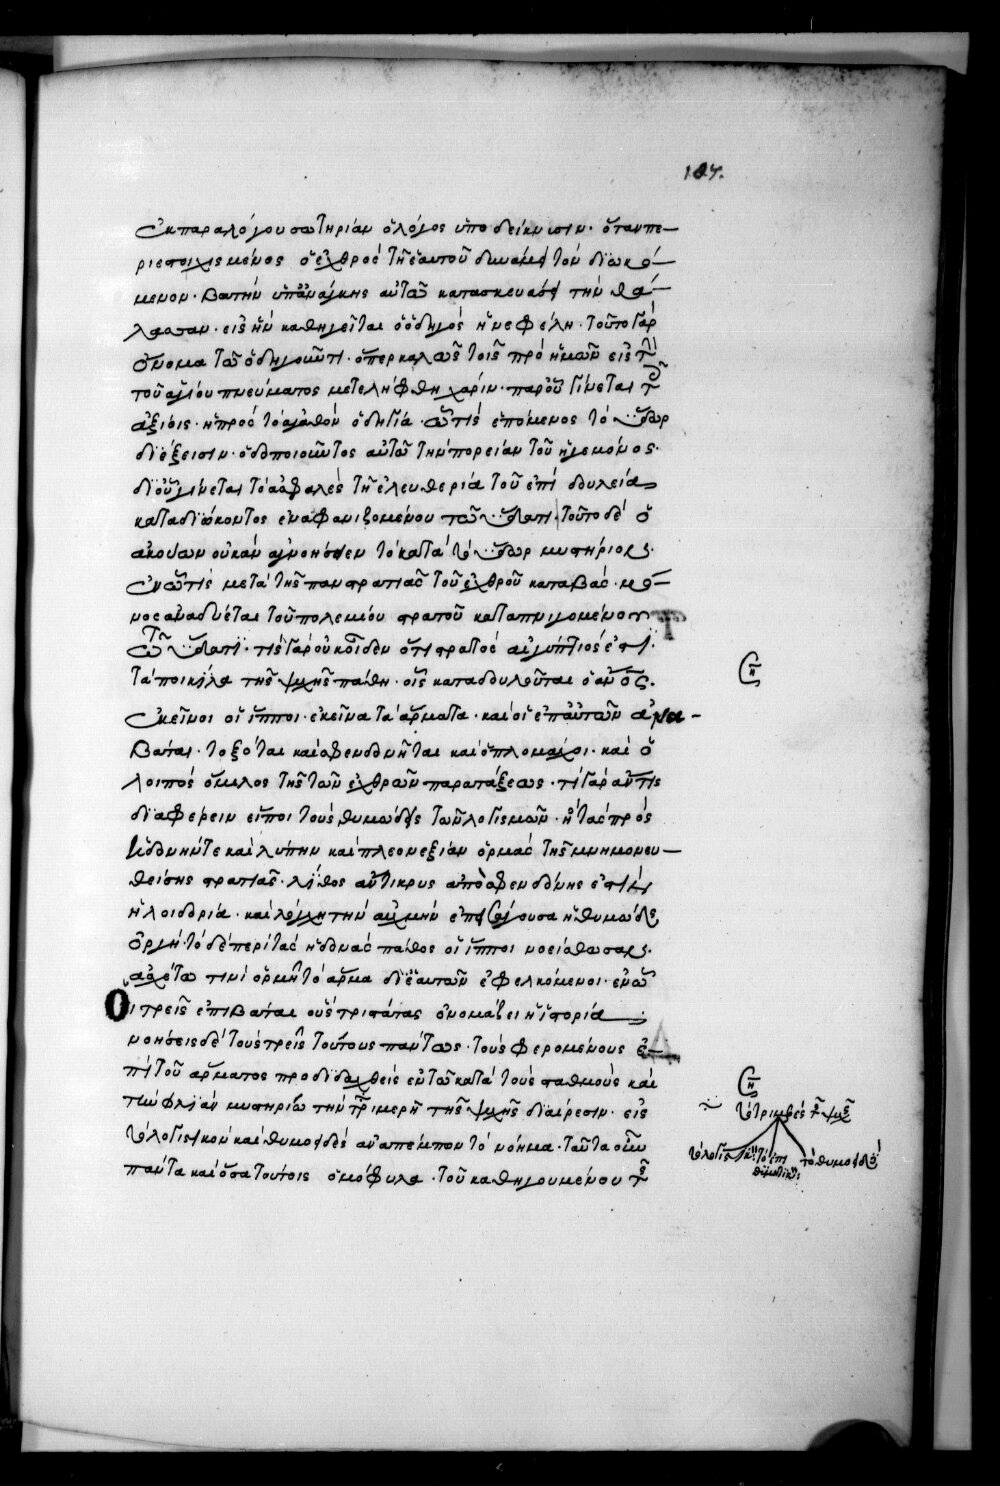 107.
ἐκ παραλόγου σωτηρίαν ὁ λόγος ὑποδείκνυσιν· ὅταν πε-
ριεστοιχισμένος ὁ ἐχθρὸς τῇ ἑαυτοῦ δυνάμει τὸν διωκό-
μενον· βατὴν ὑπ' ἀνάγκης αὐτῶ κατασκευάσει τὴν θά-
λασσαν· εἰς ἣν καθηγεῖται ὁ ὁδηγὸς ἡ νεφέλη· τοῦτο γὰρ
ὄνομα τῶ ὁδηγοῦντι· ὅπερ καλῶς τοῖς πρὸ ἡμῶν εἰς τὴν
τοῦ ἁγίου πνεύματος μετελήφθη χάριν· παρ' οὗ γίνεται τοῖς
ἀξίοις· ἡ πρὸς τὸ ἀγαθὸν ὁδηγία· ᾧ τις ἑπόμενος τὸ ὕδωρ
διέξεισιν· ὁδοποιοῦντος αὐτῶ τὴν πορείαν τοῦ ἡγεμόνος·
δι' οὗ γίνεται τὸ ἀσφαλὲς τῇ ἐλευθερία τοῦ ἐπὶ δουλεία
καταδιώκοντος ἐναφανιζομένου τῶ ὕδατι· τοῦτο δὲ ὁ
ἀκούων οὐκ ἂν ἀγνοήσειεν τὸ κατὰ τὸ ὕδωρ μυστήριον·
ἐν ᾧ τις μετὰ τῆς πανστρατιᾶς τοῦ ἐχθροῦ καταβάς· μό-
νος ἀναδύεται τοῦ πολεμίου στρατοῦ καταπνιγομένου
τῶ ὕδατι· τίς γὰρ οὐκ οἶδεν ὅτι στρατὸς αἰγύπτιός ἐστι·
τὰ ποικίλα τῆς ψυχῆς πάθη· οἷς καταδουλοῦται ὁ ἄνος·
ἐκεῖνοι οἱ ἵπποι· ἐκεῖνα τὰ ἅρματα· καὶ οἱ ἐπ' αὐτῶν ἀνα-
βάται· τοξόται καὶ σφενδονῆται καὶ ὁπλομάχοι· καὶ ὁ
λοιπὸς ὅμιλος τῆς τῶν ἐχθρῶν παρατάξεως· τί γὰρ ἄν τις
διαφέρειν εἴποι τοὺς θυμώδεις τῶν λογισμῶν· ἢ τὰς πρὸς
ἡδονήν τε καὶ λύπην καὶ πλεονεξίαν ὁρμὰς τῆς μνημονευ-
θείσης στρατιᾶς· λίθος ἄντικρυς ἀπὸ σφενδόνης ἐστὶν
ἡ λοιδορία· καὶ λόγχη τὴν αἰχμὴν ἐπισείουσα ἡ θυμώδης
ὀργή· τὸ δὲ περὶ τὰς ἡδονὰς πάθος οἱ ἵπποι νοείσθωσαν·
ἀσχέτω τινὶ ὁρμῇ τὸ ἅρμα δι' ἑαυτῶν ἐφελκόμενοι· ἐν ᾧ
οἱ τρεῖς ἐπιβάται οὓς τριστάτας ὀνομάζει ἡ ἱστορία
νοήσεις δὲ τοὺς τρεῖς τούτους πάντως· τοὺς φερομένους ἐ-
πὶ τοῦ ἅρματος προδιδαχθεὶς ἐν τῶ κατὰ τοὺς σταθμοὺς καὶ
τὴν φλιὰν μυστηρίω τὴν τριμερῆ τῆς ψυχῆς διαίρεσιν· εἰς
τὸ λογιστικὸν καὶ θυμοειδὲς ἀναπέμπων τὸ νόημα· ταῦτα οὖν
πάντα καὶ ὅσα τούτοις ὁμόφυλα· τοῦ καθηγουμένου τῆς
ση
ση
τὸ τριμερὲς τῆς ψυχῆς
τὸ λογιστικόν τὸ ἐπιθυμητικόν τὸ θυμοειδές